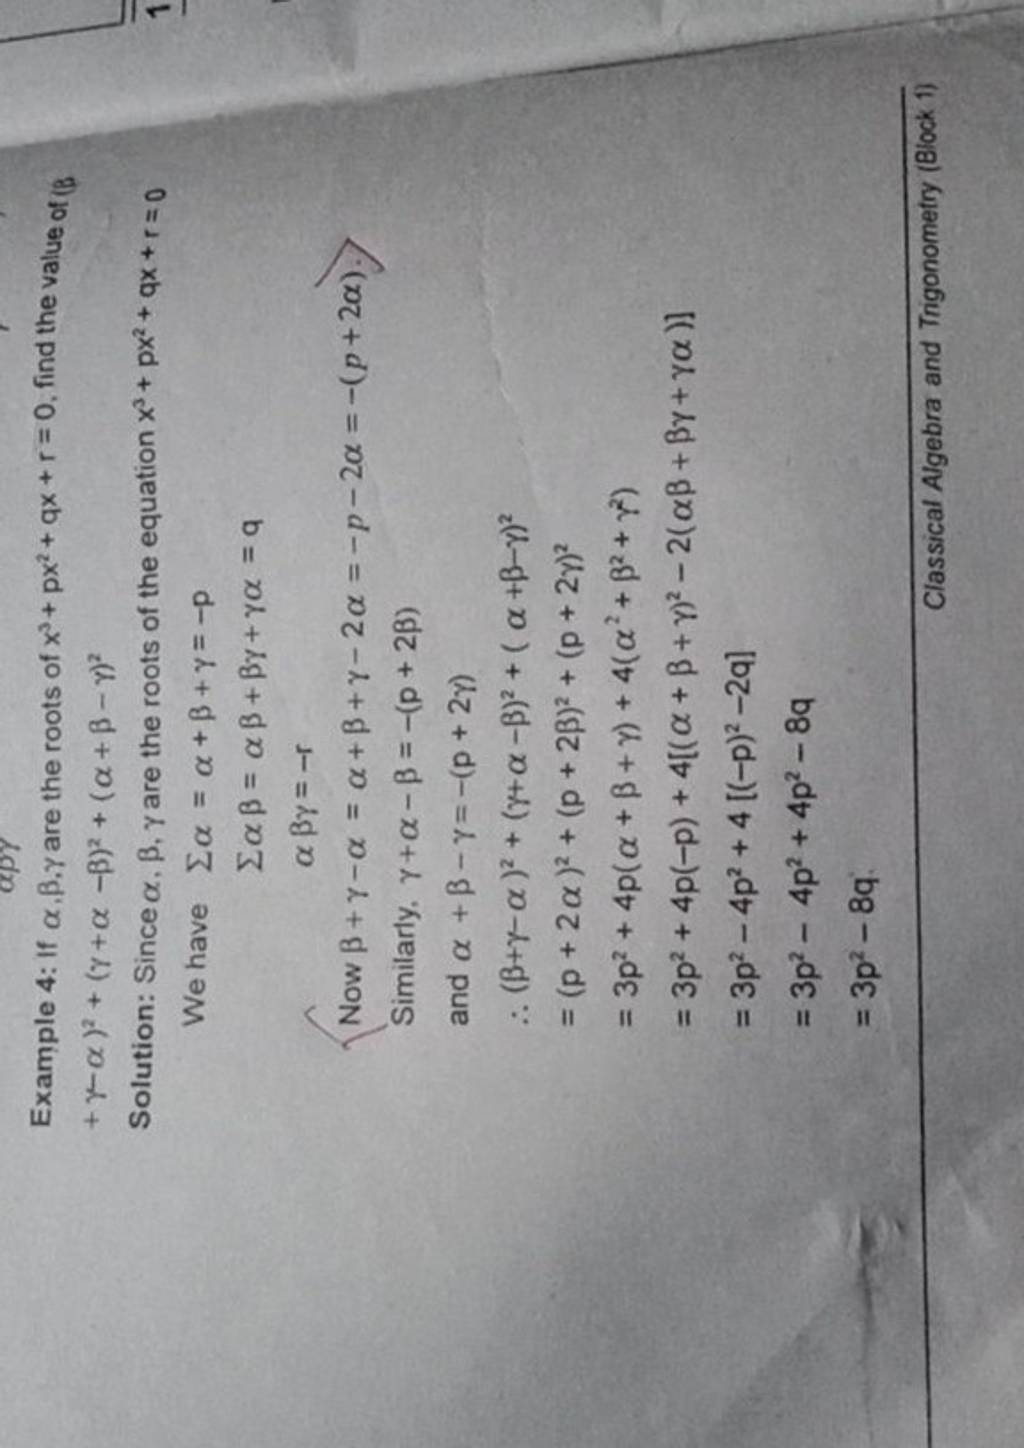 1
αβγ
Example 4: If α,β,γ are the roots of x³ + px² + qx + r = 0, find the value of (β
+ γ−α)² + (γ+α −β)² + (α + β − γ)²
Solution: Since α, β, γ are the roots of the equation x³ + px² + qx + r = 0
We have Σα = α + β + γ = −p
Σαβ = αβ + βγ + γα = q
αβγ = −r
Now β + γ − α = α + β + γ − 2α = −p − 2α = −(p + 2α).
Similarly, γ+α − β = −(p + 2β)
and α + β − γ = −(p + 2γ)
∴ (β+γ−α)² + (γ+α −β)² + ( α +β−γ)²
= (p + 2α)² + (p + 2β)² + (p + 2γ)²
= 3p² + 4p(α + β + γ) + 4(α² + β² + γ²)
= 3p² + 4p(−p) + 4[(α + β + γ)² − 2(αβ + βγ + γα)]
= 3p² − 4p² + 4 [(−p)² −2q]
= 3p² − 4p² + 4p² − 8q
= 3p² − 8q.
Classical Algebra and Trigonometry (Block 1)